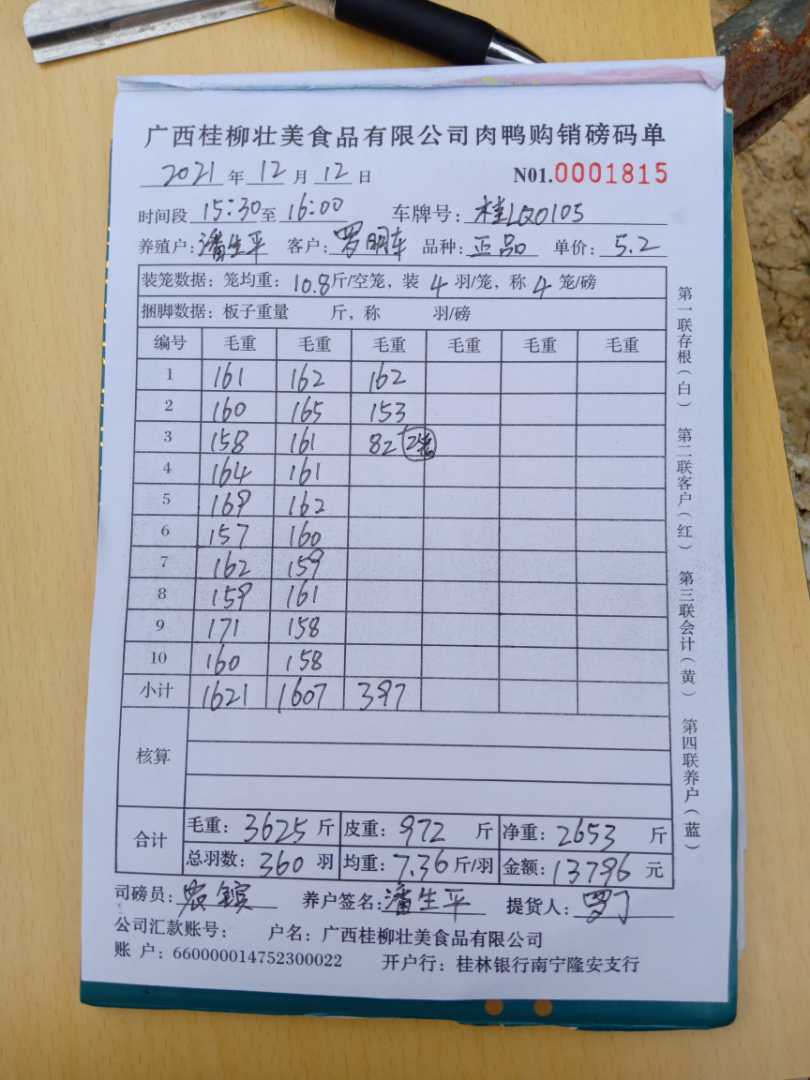 广西桂柳壮美食品有限公司肉鸭购销磅码单
2021 年 12 月 12 日 N01.0001815
时间段 15:30 至 16:00 车牌号: 桂LQ0105
养殖户: 潘生平 客户: 罗明车 品种: 正品 单价: 5.2
装笼数据: 笼均重: 10.8 斤/空笼, 装 4 羽/笼, 称 4 笼/磅
捆脚数据: 板子重量 斤, 称 羽/磅
编号 毛重 毛重 毛重 毛重 毛重 毛重
1 161 162 162
2 160 165 153
3 158 161 82 2笼
4 164 161
5 169 162
6 157 160
7 162 159
8 159 161
9 171 158
10 160 158
小计 1621 1607 397
核算
合计 毛重: 3625 斤 皮重: 972 斤 净重: 2653 斤
总羽数: 360 羽 均重: 7.36 斤/羽 金额: 13796 元
司磅员: 养户签名: 潘生平 提货人: 罗丁
公司汇款账号: 户名: 广西桂柳壮美食品有限公司
账 户: 660000014752300022 开户行: 桂林银行南宁隆安支行
第一联存根(白) 第二联客户(红) 第三联会计(黄) 第四联养户(蓝)